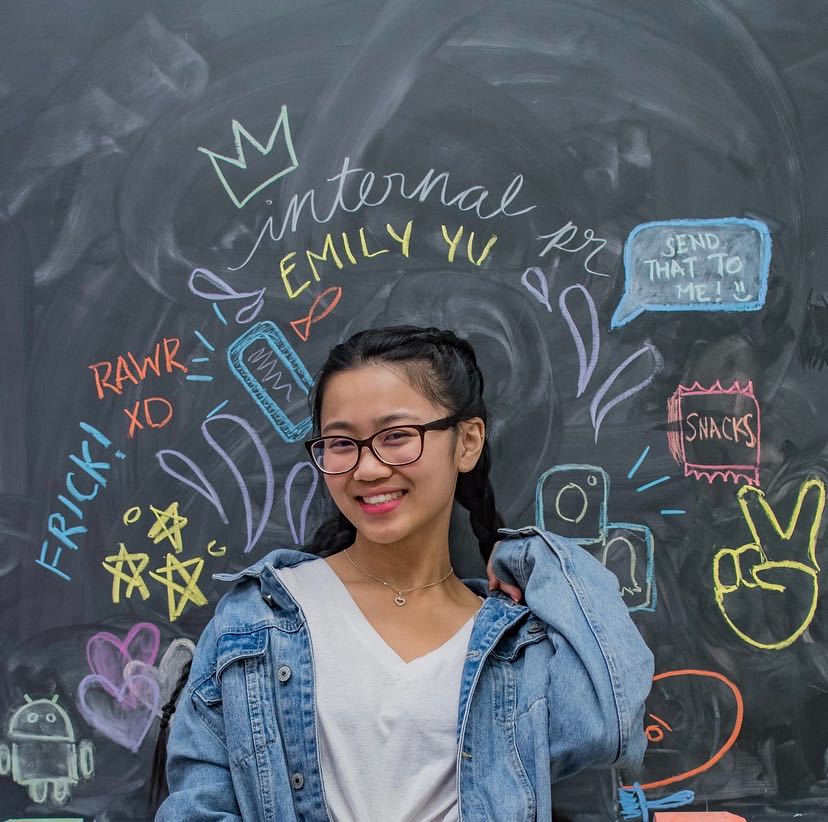 internal
EMILY YU
pr
SEND
THAT TO
ME! :)
RAWR
XD
FRICK!
SNACKS